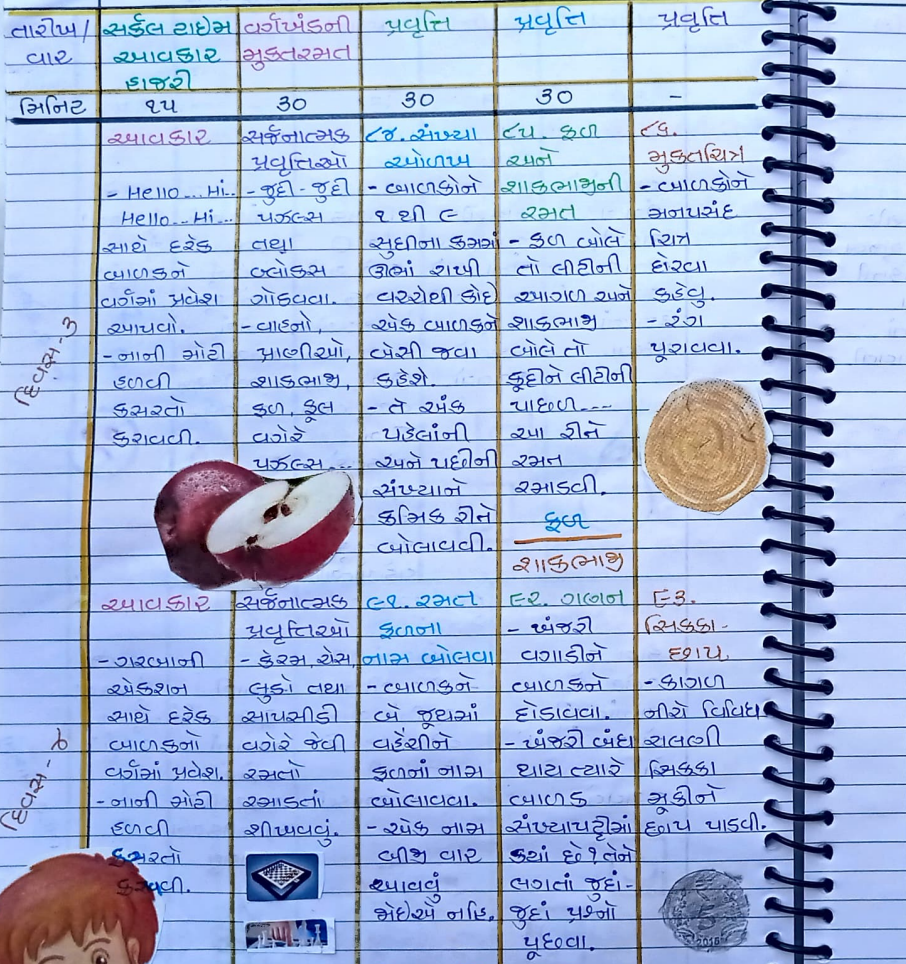 તારીખ/
વાર
સર્કલ ટાઇમ
આવકાર
હાજરી
વર્ગખંડની
મુક્તરમત
પ્રવૃત્તિ
પ્રવૃત્તિ
પ્રવૃત્તિ
મિનિટ
૧૫
30
30
30
-
દિવસ-૩
આવકાર
- Hello...Hi..
Hello...Hi...
સાથે દરેક
બાળકને
વર્ગમાં પ્રવેશ
આપવો.
-નાની મોટી
હળવી
કસરતો
કરાવવી.
સર્જનાત્મક
પ્રવૃત્તિઓ
- જુદી-જુદી
પઝલ્સ
તથા
બ્લોકસ
ગોઠવવા.
- વાહનો,
પ્રાણીઓ,
શાકભાજી,
ફળ, ફૂલ
વગેરે
પઝલ્સ...
૮૪. સંખ્યા
ઓળખ
- બાળકોને
૧ થી ૯
સુધીના ક્રમમાં
ઊભાં રાખી
વચ્ચેથી કોઇ
એક બાળકને
બેસી જવા
કહેશે.
- તે અંક
પહેલાંની
અને પછીની
સંખ્યાને
ક્રમિક રીતે
બોલાવવી.
૮૫. ફળ
અને
શાકભાજીની
રમત
- ફળ બોલે
તો લીટીની
આગળ અને
શાકભાજી
બોલે તો
કૂદીને લીટીની
પાછળ---
આ રીતે
રમત
રમાડવી.
ફળ
શાકભાજી
૮૬.
મુક્તચિત્ર
- બાળકોને
મનપસંદ
ચિત્ર
દોરવા
કહેવુ.
- રંગ
પૂરાવવા.
દિવસ-૪
આવકાર
- ગરબાની
એકશન
સાથે દરેક
બાળકનો
વર્ગમાં પ્રવેશ.
-નાની મોટી
હળવી
કસરતો
કરાવવી.
સર્જનાત્મક
પ્રવૃત્તિઓ
- કેરમ, ચેસ,
લુડો તથા
સાપસીડી
વગેરે જેવી
રમતો
રમાડતાં
શીખવવું.
૯૧. રમત
ફળના
નામ બોલવા
- બાળકને
બે જૂથમાં
વહેંચીને
ફળનાં નામ
બોલાવવા.
- એક નામ
બીજી વાર
આવવું
જોઇએ નહિ.
૯૨. ગણન
- ખંજરી
વગાડીને
બાળકને
દોડાવવા.
- ખંજરી બંધ
થાય ત્યારે
બાળક
સંખ્યાપટ્ટીમાં
કયાં છે ? તેને
લગતાં જુદાં-
જુદાં પ્રશ્નો
પૂછવા.
૯૩.
સિક્કા-
છાપ
- કાગળ
નીચે વિવિધ
ચલણી
સિક્કા
મૂકીને
છાપ પાડવી.